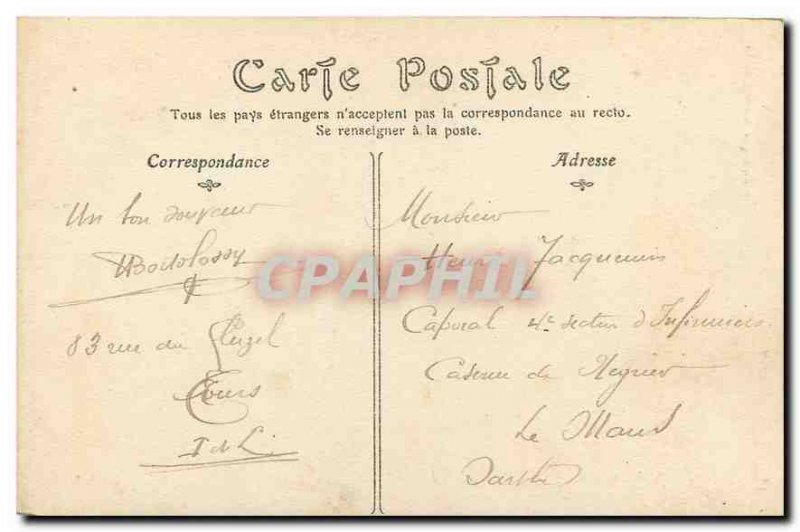 Carte Postale
Tous les pays étrangers n'acceptent pas la correspondance au recto.
Se renseigner à la poste.
Correspondance
Un bon souvenir
83 rue du
Tours
I de L.
Adresse
Monsieur
Henri Jacquemin
Caporal 4e section d'Infirmiers
Caserne de
Le Mans
Sarthe
CPAPHIL